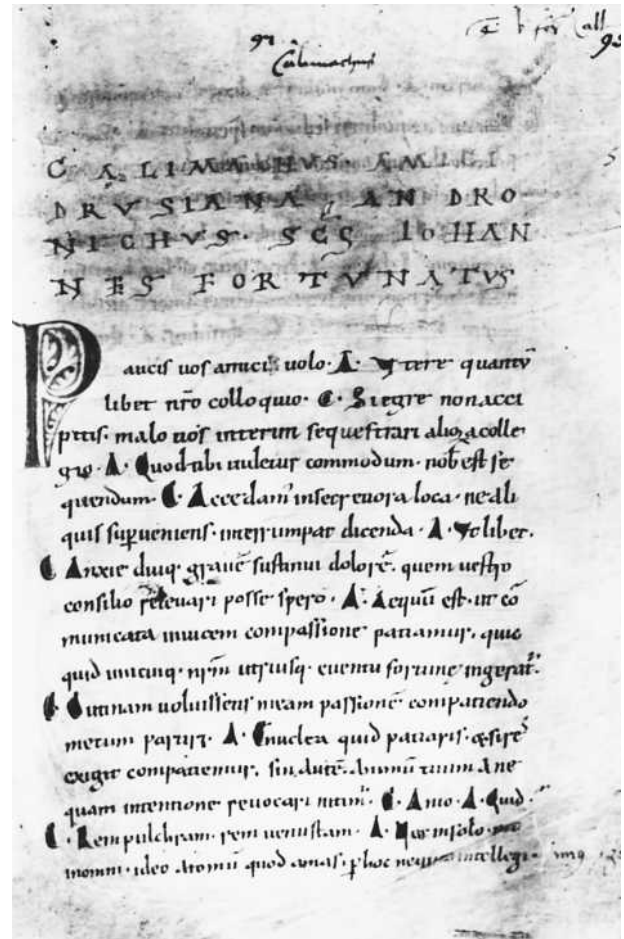 Calimachus
CALIMAHVS. AMICI
DRVSIANA. ANDRO
NICHVS. SC̄S IOHAN
NES FORTVNATUS
Paucis uos amici uolo. A. Vtere quantū
libet nr̄o colloquio. C. Si egre non acci
pitis. malo uos interim sequestrari aliq̄ꝫ colle
gio. A. Quod tibi uidetur commodum. nob̄ est se
quendum. C. Accedam' in secretiora loca. ne ali
quis sup̱ueniens. interrumpat dicenda. A. Vt libet.
C Anxie diuq; grauē sustinui dolorē. quem uestro
consilio releuari posse spero. A. Aequū est. ut cō
municata inuicem compassione patiamur. quic
quid unicuiq; nrm̄ utriusq; euentu fortunę ingerat'.
C. O utinam uoluissetis meam passionē compatiendo
mecum partiri. A. Enuclea quid patiaris. & si res
exigit compatiemur. sin autē. animū tuum a ne
quam intentione reuocari nitim'. C. Amo. A. Quid.
C. Rem pulchram. rem uenustam. A. Nec in solo. nec
in omni. ideo atomū quod amas. p̱ hoc nequit intellegi.